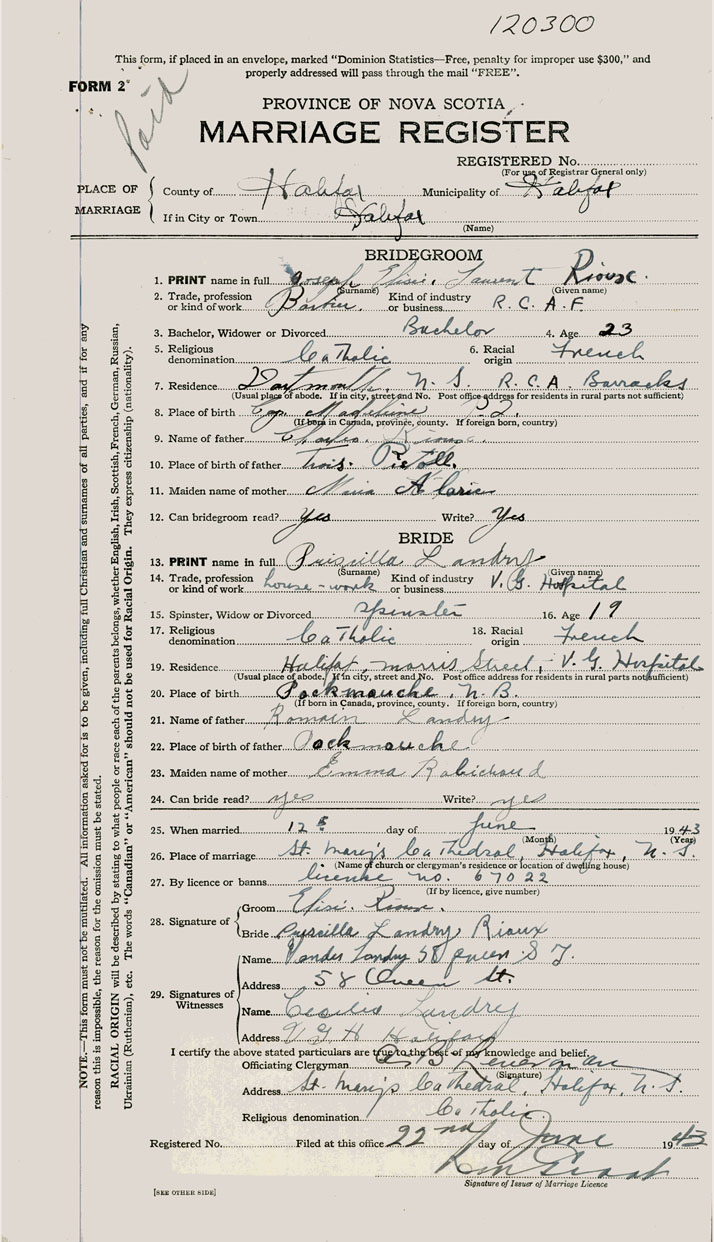 120300
This form, if placed in an envelope, marked “Dominion Statistics—Free, penalty for improper use $300,” and
properly addressed will pass through the mail “FREE”.
FORM 2
Paid
PROVINCE OF NOVA SCOTIA
MARRIAGE REGISTER
REGISTERED No.
(For use of Registrar General only)
PLACE OF MARRIAGE
County of Halifax Municipality of Halifax
If in City or Town Halifax
(Name)
BRIDEGROOM
1. PRINT name in full Joseph Elisé. Laurent Rioux.
(Surname) (Given name)
2. Trade, profession or kind of work Kind of industry or business R.C.A.F.
3. Bachelor, Widower or Divorced Bachelor 4. Age 23
5. Religious denomination Catholic 6. Racial origin French
7. Residence Dartmouth, N.S. R.C.A. Barracks
(Usual place of abode. If in city, street and No. Post office address for residents in rural parts not sufficient)
8. Place of birth Cap Madeleine P.Q.
(If born in Canada, province, county. If foreign born, country)
9. Name of father Rioux.
10. Place of birth of father Trois-Pistoll.
11. Maiden name of mother
12. Can bridegroom read? Yes Write? Yes
BRIDE
13. PRINT name in full Priscilla Landry
(Surname) (Given name)
14. Trade, profession or kind of work house-work Kind of industry or business V.G. Hospital
15. Spinster, Widow or Divorced Spinster 16. Age 19
17. Religious denomination Catholic 18. Racial origin French
19. Residence Halifax, Morris Street, - V.G. Hospital
(Usual place of abode. If in city, street and No. Post office address for residents in rural parts not sufficient)
20. Place of birth Pockmouche, N.B.
(If born in Canada, province, county. If foreign born, country)
21. Name of father Romain Landry
22. Place of birth of father Pockmouche
23. Maiden name of mother Emma Robichaud
24. Can bride read? yes Write? yes
25. When married 12th day of June 1943
(Month) (Year)
26. Place of marriage St. Mary's Cathedral, Halifax, N.S.
(Name of church or clergyman's residence or location of dwelling house)
27. By licence or banns license no. 67022
(If by licence, give number)
28. Signature of Groom Elisé. Rioux.
Bride Priscilla Landry Rioux
29. Signatures of Witnesses
Name Landry 58 queen ST.
Address 58 Queen St.
Name Cecilia Landry
Address V G H Halifax
I certify the above stated particulars are true to the best of my knowledge and belief.
Officiating Clergyman
(Signature)
Address St. Mary's Cathedral, Halifax, N.S.
Religious denomination Catholic.
Registered No. Filed at this office 22nd day of June 1943
Signature of Issuer of Marriage Licence
[SEE OTHER SIDE]
NOTE.—This form must not be mutilated. All information asked for is to be given, including full Christian and surnames of all parties, and if for any
reason this is impossible, the reason for the omission must be stated.
RACIAL ORIGIN will be described by stating to what people or race each of the parents belongs, whether English, Irish, Scottish, French, German, Russian,
Ukrainian (Ruthenian), etc. The words “Canadian” or “American” should not be used for Racial Origin. They express citizenship (nationality).